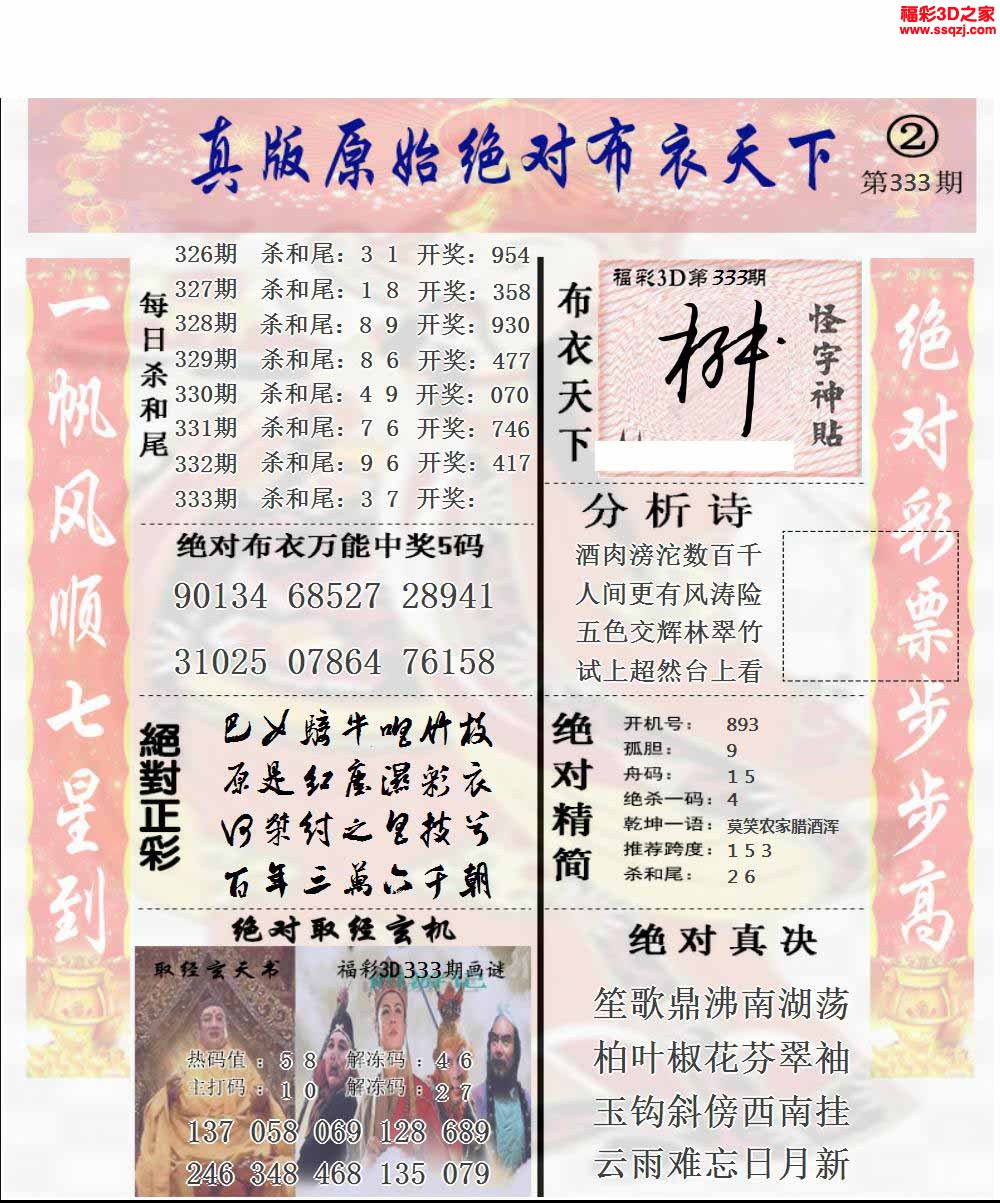 福彩3D之家
www.ssqzj.com
真版原始绝对布衣天下
②
第333期
一帆风顺七星到
每日杀和尾
326期 杀和尾：3 1 开奖：954
327期 杀和尾：1 8 开奖：358
328期 杀和尾：8 9 开奖：930
329期 杀和尾：8 6 开奖：477
330期 杀和尾：4 9 开奖：070
331期 杀和尾：7 6 开奖：746
332期 杀和尾：9 6 开奖：417
333期 杀和尾：3 7 开奖：
绝对布衣万能中奖5码
90134 68527 28941
31025 07864 76158
絕對正彩
原是红尘湿彩衣
百年三萬六千朝
绝对取经玄机
取经玄天书
福彩3D333期画谜
热码值：5 8 解冻码：4 6
主打码：1 0 解冻码：2 7
137 058 069 128 689
246 348 468 135 079
布衣天下
福彩3D第333期
怪字神貼
分析诗
酒肉滂沱数百千
人间更有风涛险
五色交辉林翠竹
试上超然台上看
绝对精简
开机号：893
孤胆：9
舟码：1 5
绝杀一码：4
乾坤一语：莫笑农家腊酒浑
推荐跨度：1 5 3
杀和尾：2 6
绝对真决
笙歌鼎沸南湖荡
柏叶椒花芬翠袖
玉钩斜傍西南挂
云雨难忘日月新
绝对彩票步步高